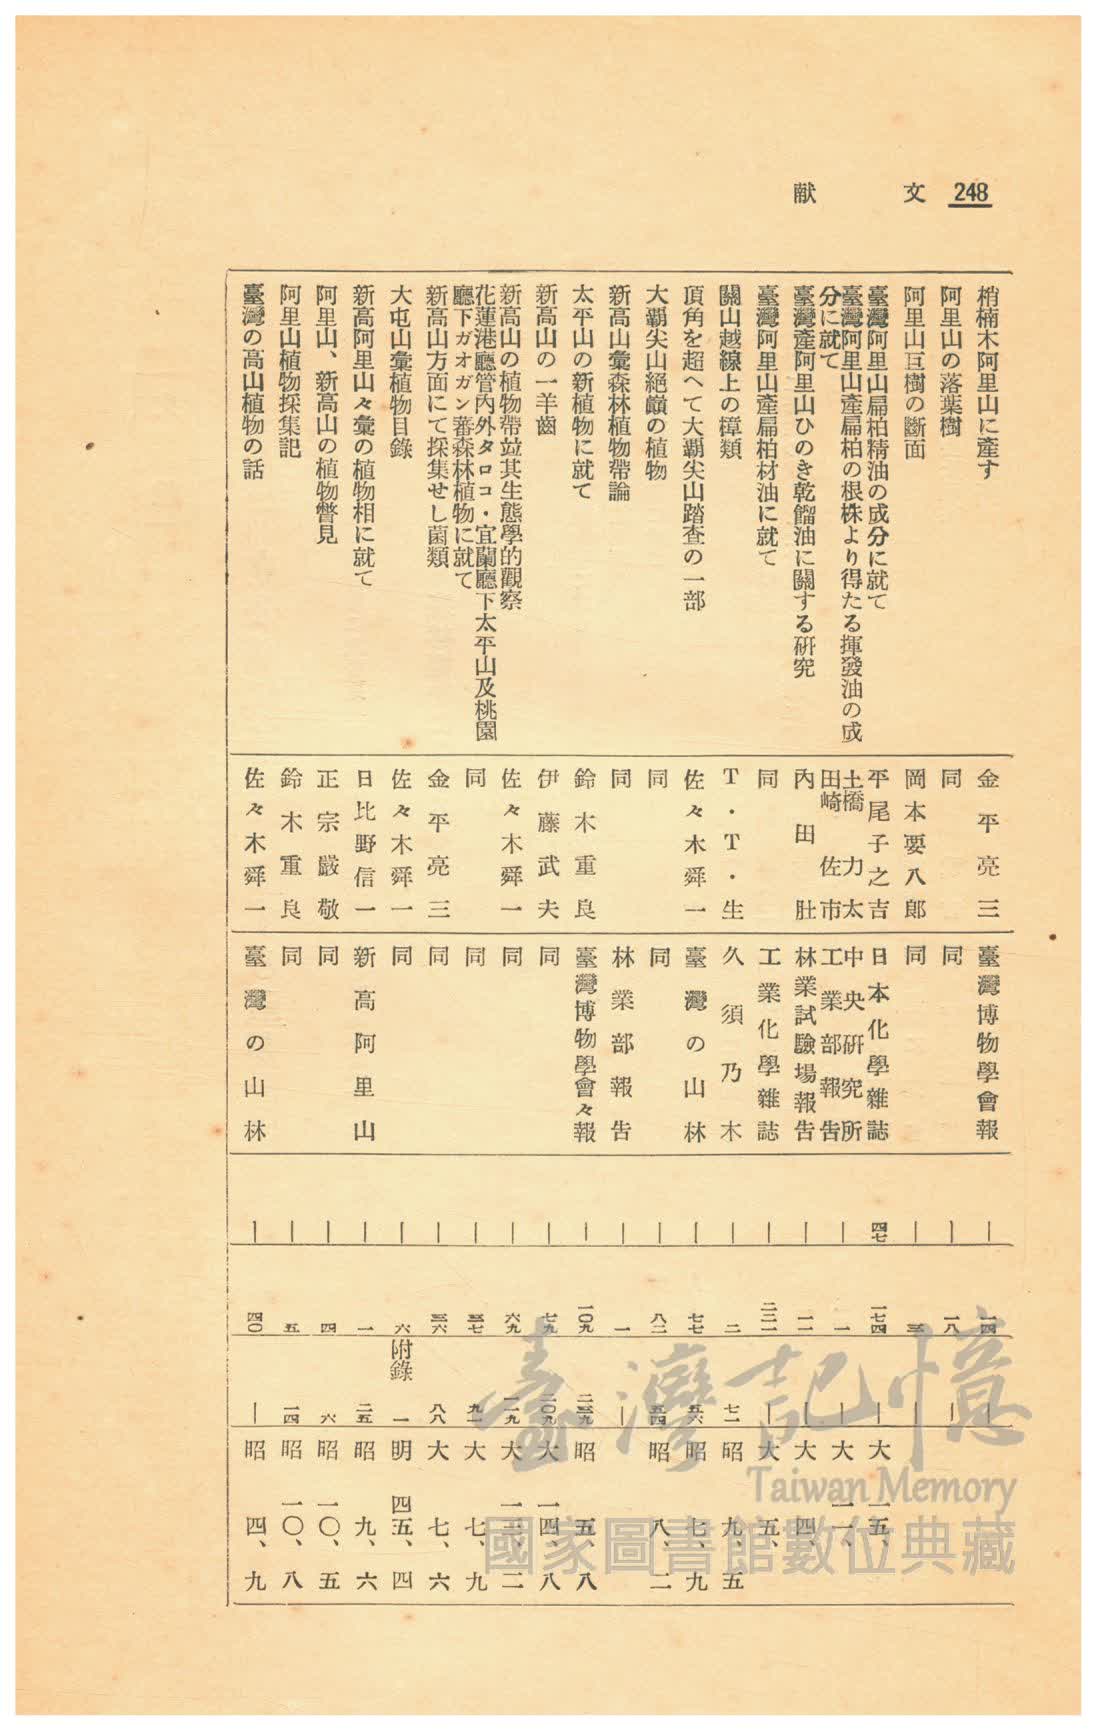 248
文献
梢楠木阿里山に產す 金平亮三 臺灣博物學會報 ― 一四 ―
阿里山の落葉樹 同 同 ― 一八 ―
阿里山巨樹の斷面 岡本要八郎 同 ―
臺灣阿里山扁柏精油の成分に就て 平尾子之吉 日本化學雜誌 四七 一七四 ― 大一五、
臺灣阿里山產扁柏の根株より得たる揮發油の成
分に就て 土橋力太 田崎佐市 中央研究所工業部報告 ― 一 ― 大一一、
臺灣產阿里山ひのき乾餾油に關する硏究 內田壯 林業試驗場報告 ― 一一 ― 大四、
臺灣阿里山產扁柏材油に就て 同 工業化學雜誌 ― 二三一 ― 大五、
關山越線上の樟類 T・T・生 久須乃木 ― 二 七一 昭九、五
頂角を超へて大覇尖山踏查の一部 佐々木舜一 臺灣の山林 ― 七七 五六 昭七、九
大覇尖山絕巓の植物 同 同 ― 八二 五四 昭八、二
新高山彙森林植物帶論 同 林業部報告 ― 一 ―
太平山の新植物に就て 鈴木重良 臺灣博物學會々報 ― 一〇九 二三九 昭五、八
新高山の一羊齒 伊藤武夫 同 ― 七九 二〇九 大一四、八
新高山の植物帶竝其生態學的觀察 佐々木舜一 同 ― 六九 一一九 大一三、二
花蓮港廳管內外タロコ・宜蘭廳下太平山及桃園
廳下ガオガン蕃森林植物に就て 同 同 ― 三七 九一 大七、九
新高山方面にて採集せし菌類 金平亮三 同 ― 三六 八八 大七、六
大屯山彙植物目錄 佐々木舜一 同 ― 六附錄 一 明四五、四
新高阿里山々彙の植物相に就て 日比野信一 新高阿里山 ― 一 二五 昭九、六
阿里山、新高山の植物瞥見 正宗嚴敬 同 ― 四 六 昭一〇、五
阿里山植物採集記 鈴木重良 同 ― 五 一四 昭一〇、八
臺灣の高山植物の話 佐々木舜一 臺灣の山林 ― 四〇 ― 昭四、九
臺灣記憶
Taiwan Memory
國家圖書館數位典藏